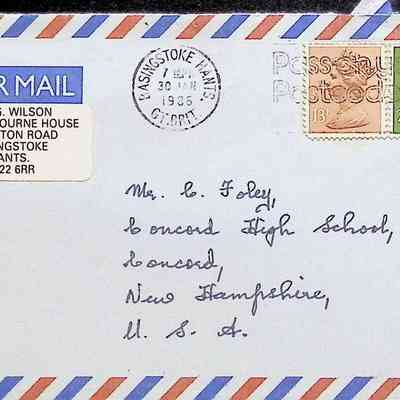 R MAIL
S. WILSON
OURNE HOUSE
TON ROAD
NGSTOKE
ANTS.
22 6RR
BASINGSTOKE HANTS.
30 JAN
1986
GT. BRIT.
Pass on
Postcod
13
Mr. C. Foley,
Concord High School,
Concord,
New Hampshire,
U. S. A.